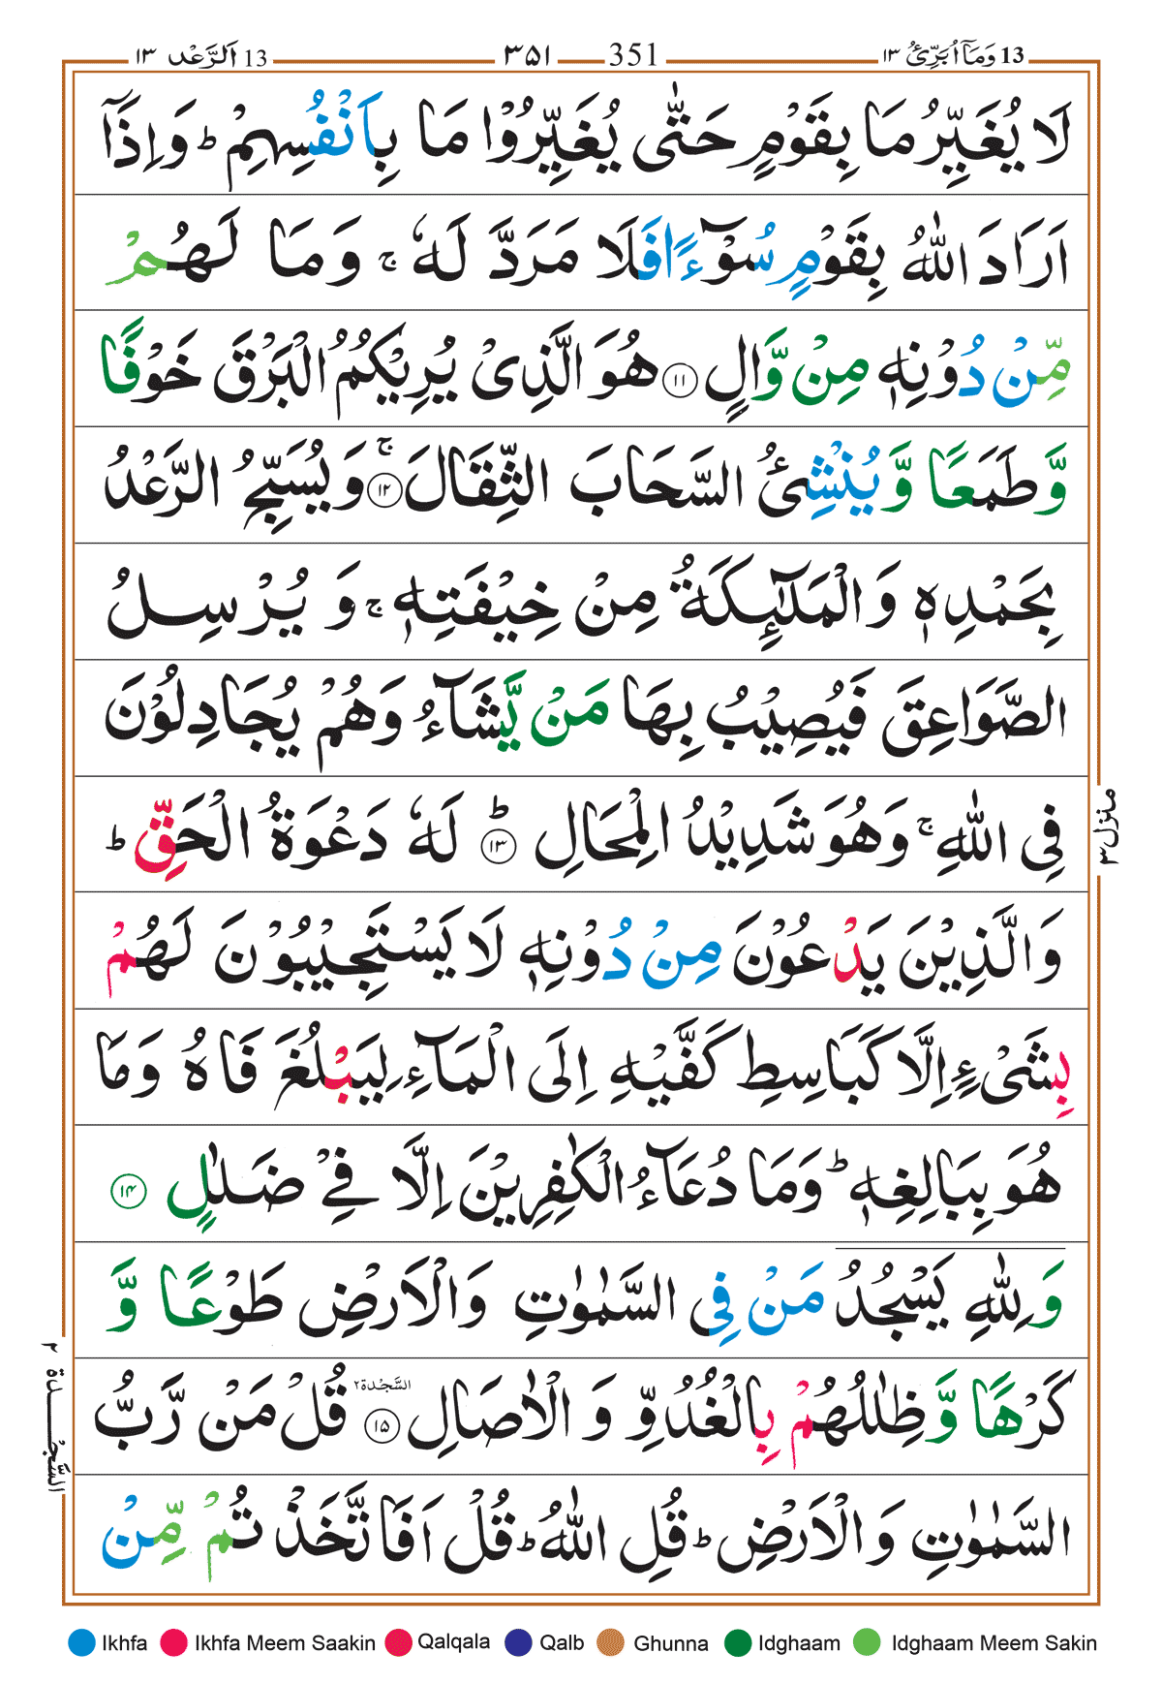 13 وَمَآ اُبَرِّئُ ١٣ 351 ٣٥١ 13 اَلرَّعْد ١٣
لَا يُغَيِّرُ مَا بِقَوْمٍ حَتّٰى يُغَيِّرُوْا مَا بِاَنْفُسِهِمْ ؕ وَاِذَآ
اَرَادَ اللّٰهُ بِقَوْمٍ سُوْٓءًا فَلَا مَرَدَّ لَهٗ ۚ وَمَا لَهُمْ
مِّنْ دُوْنِهٖ مِنْ وَّالٍ ١١ هُوَ الَّذِىْ يُرِيْكُمُ الْبَرْقَ خَوْفًا
وَّطَمَعًا وَّيُنْشِئُ السَّحَابَ الثِّقَالَ ۚ ١٢ وَيُسَبِّحُ الرَّعْدُ
بِحَمْدِهٖ وَالْمَلٰٓئِكَةُ مِنْ خِيْفَتِهٖ ۚ وَيُرْسِلُ
الصَّوَاعِقَ فَيُصِيْبُ بِهَا مَنْ يَّشَآءُ وَهُمْ يُجَادِلُوْنَ
فِى اللّٰهِ ۚ وَهُوَ شَدِيْدُ الْمِحَالِ ؕ ١٣ لَهٗ دَعْوَةُ الْحَقِّ ؕ
وَالَّذِيْنَ يَدْعُوْنَ مِنْ دُوْنِهٖ لَا يَسْتَجِيْبُوْنَ لَهُمْ
بِشَىْءٍ اِلَّا كَبَاسِطِ كَفَّيْهِ اِلَى الْمَآءِ لِيَبْلُغَ فَاهُ وَمَا
هُوَ بِبَالِغِهٖ ؕ وَمَا دُعَآءُ الْكٰفِرِيْنَ اِلَّا فِىْ ضَلٰلٍ ١٤
وَلِلّٰهِ يَسْجُدُ مَنْ فِى السَّمٰوٰتِ وَالْاَرْضِ طَوْعًا وَّ
كَرْهًا وَّظِلٰلُهُمْ بِالْغُدُوِّ وَالْاٰصَالِ السَّجْدَة٢ ١٥ قُلْ مَنْ رَّبُّ
السَّمٰوٰتِ وَالْاَرْضِ ؕ قُلِ اللّٰهُ ؕ قُلْ اَفَاتَّخَذْتُمْ مِّنْ
منزل٣
السَّجْدَة ٢
Ikhfa Ikhfa Meem Saakin Qalqala Qalb Ghunna Idghaam Idghaam Meem Sakin